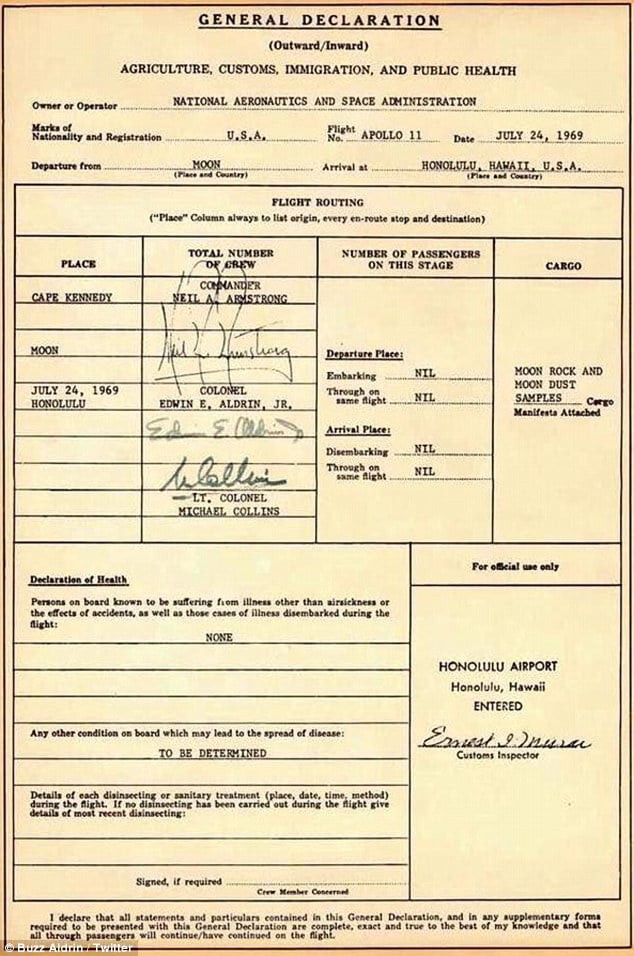 GENERAL DECLARATION
(Outward/Inward)
AGRICULTURE, CUSTOMS, IMMIGRATION, AND PUBLIC HEALTH
Owner or Operator NATIONAL AERONAUTICS AND SPACE ADMINISTRATION
Marks of
Nationality and Registration U.S.A. Flight No. APOLLO 11 Date JULY 24, 1969
Departure from MOON Arrival at HONOLULU, HAWAII, U.S.A.
(Place and Country) (Place and Country)
FLIGHT ROUTING
("Place" Column always to list origin, every en-route stop and destination)
PLACE
TOTAL NUMBER
OF CREW
NUMBER OF PASSENGERS
ON THIS STAGE
CARGO
CAPE KENNEDY
COMMANDER
NEIL A. ARMSTRONG
MOON
Neil A. Armstrong
JULY 24, 1969
HONOLULU
COLONEL
EDWIN E. ALDRIN, JR.
Edwin E. Aldrin Jr
M Collins
LT. COLONEL
MICHAEL COLLINS
Departure Place:
Embarking NIL
Through on
same flight NIL
Arrival Place:
Disembarking NIL
Through on
same flight NIL
MOON ROCK AND
MOON DUST
SAMPLES Cargo
Manifests Attached
Declaration of Health
Persons on board known to be suffering from illness other than airsickness or
the effects of accidents, as well as those cases of illness disembarked during the
flight:
NONE
Any other condition on board which may lead to the spread of disease:
TO BE DETERMINED
Details of each disinsecting or sanitary treatment (place, date, time, method)
during the flight. If no disinsecting has been carried out during the flight give
details of most recent disinsecting:
Signed, if required
Crew Member Concerned
For official use only
HONOLULU AIRPORT
Honolulu, Hawaii
ENTERED
Ernest I. Murai
Customs Inspector
I declare that all statements and particulars contained in this General Declaration, and in any supplementary forms
required to be presented with this General Declaration are complete, exact and true to the best of my knowledge and that
all through passengers will continue/have continued on the flight.
© Buzz Aldrin / Twitter